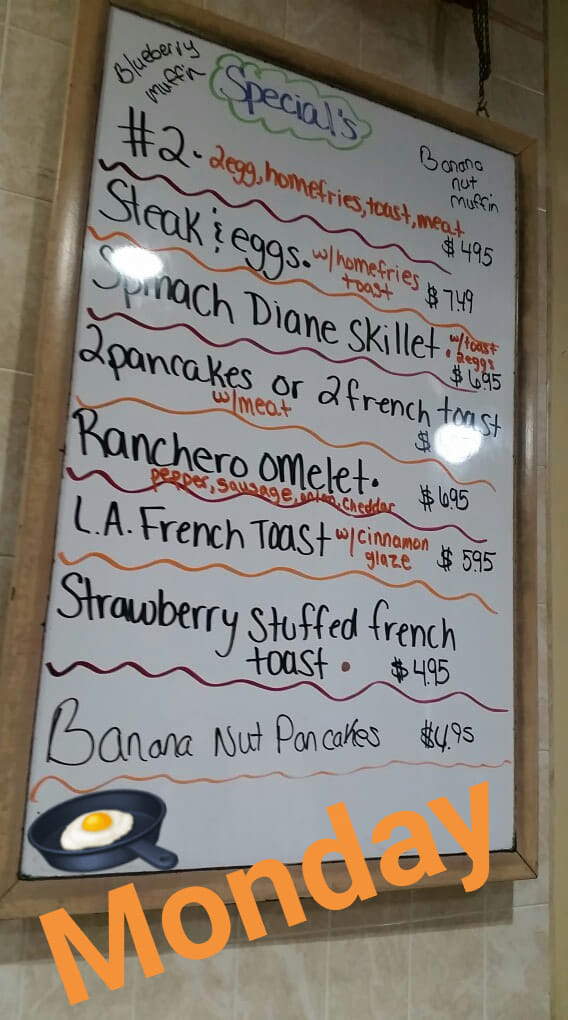 Blueberry
muffin
Special's
Banana
nut
muffin
#2. 2egg, homefries, toast, meat
$4.95
Steak & eggs. w/homefries
toast
$7.49
Spinach Diane Skillet. w/toast
2eggs
$6.95
2pancakes or 2french toast
w/meat
$
Ranchero omelet.
pepper, sausage, onion, cheddar
$6.95
L.A. French Toast w/cinnamon
glaze
$5.95
Strawberry Stuffed french
toast. $4.95
Banana Nut Pancakes $4.95
Monday